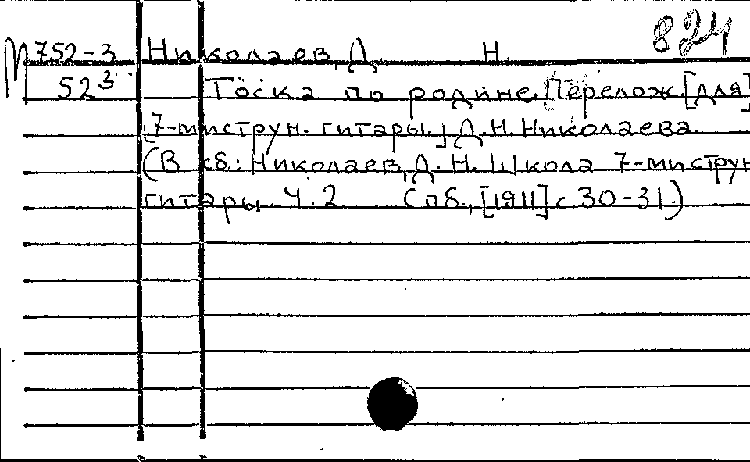 824
М 752-3 Николаев, Д. Н.
52³ Тоска по родине. [Перелож. [для]
[7-миструн. гитары.] Д. Н. Николаева.
(В сб.: Николаев, Д. Н. Школа 7-миструн
гитары. Ч. 2 Спб., [1911] с 30-31)